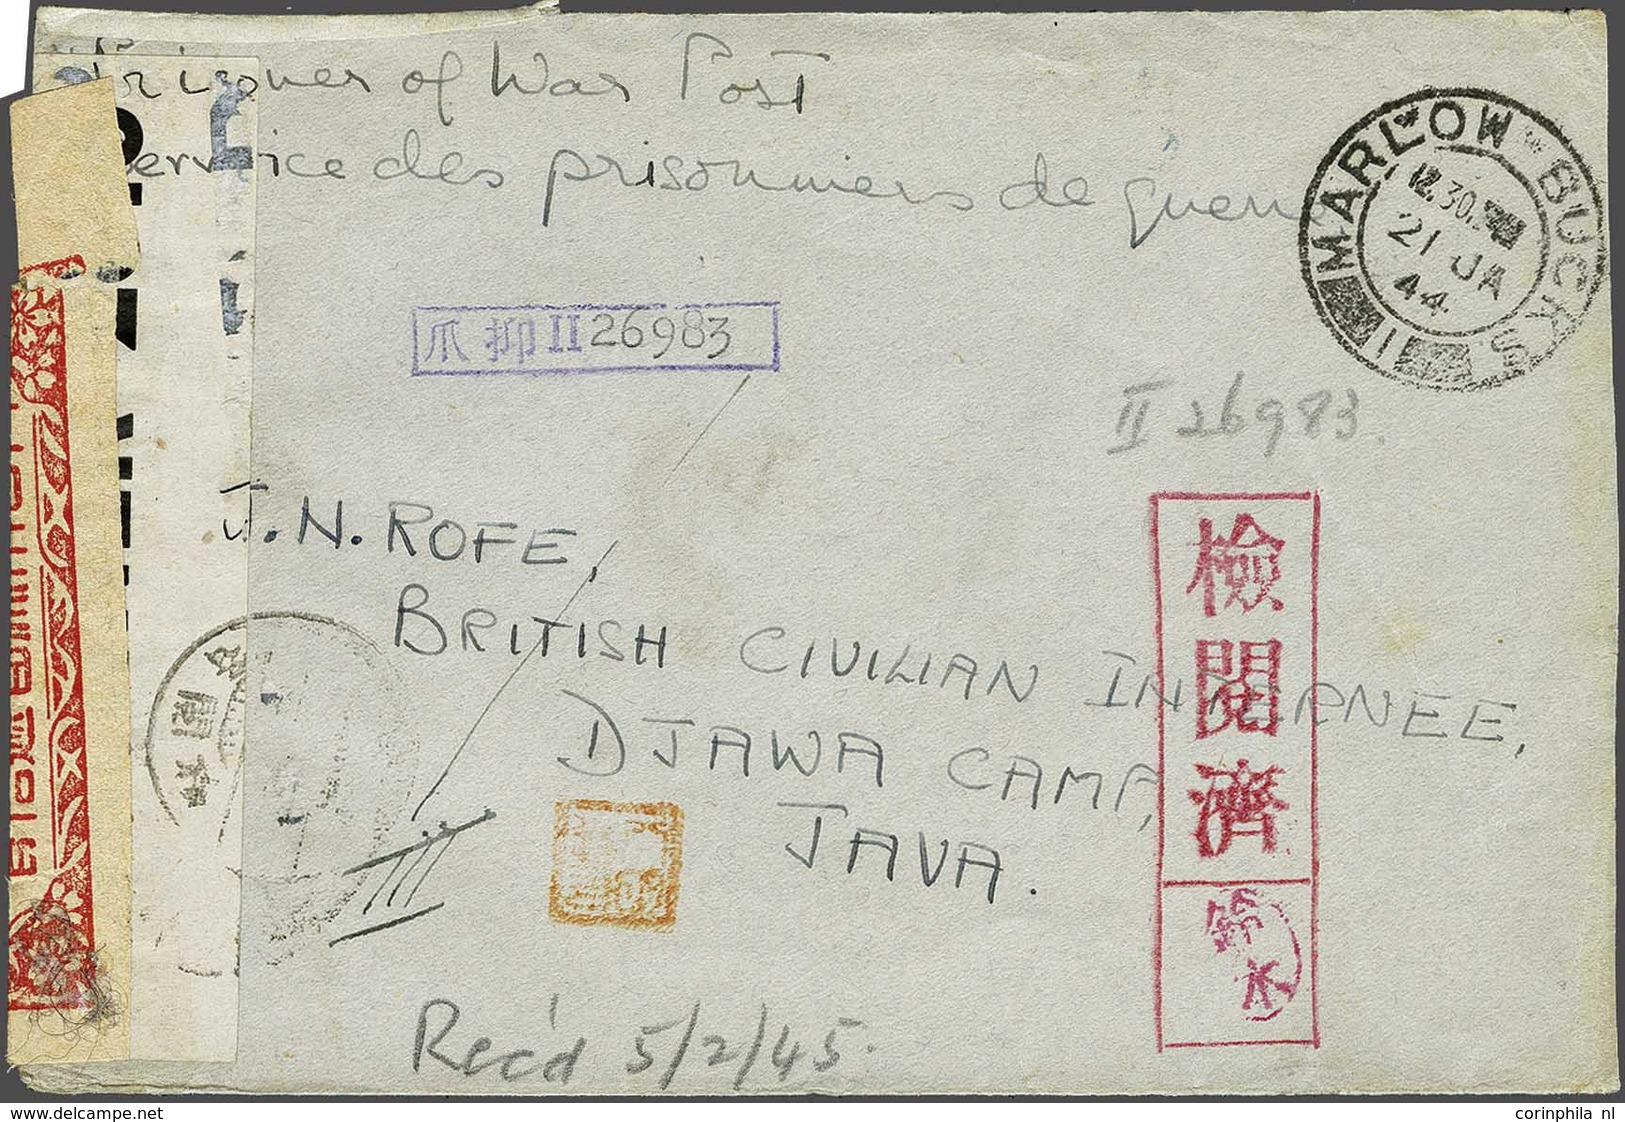 Prisoner of War Post
Service des prisonniers de guerre
MARLOW BUCKS
12.30
21 JA
44
1
爪 抑 II 26983
II 26983.
J. N. ROFE,
BRITISH CIVILIAN INTERNEE,
DJAWA CAMP,
JAVA.
檢閲濟
鈴木
III
Rec'd 5/2/45.
corinphila nl